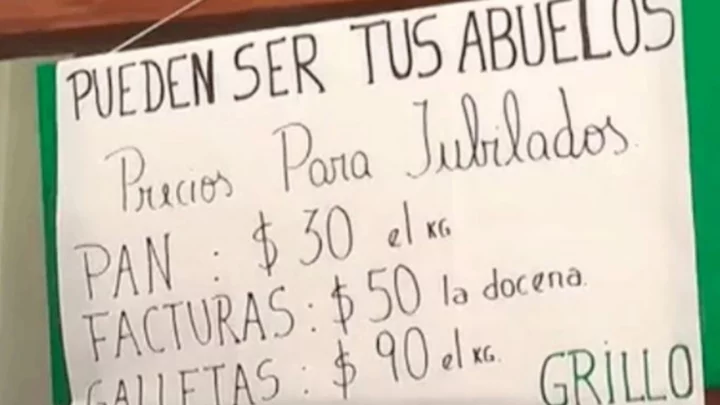 PUEDEN SER TUS ABUELOS
Precios Para Jubilados
PAN : $ 30 el KG
FACTURAS : $ 50 la docena.
GALLETAS : $ 90 el KG.
GRILLO